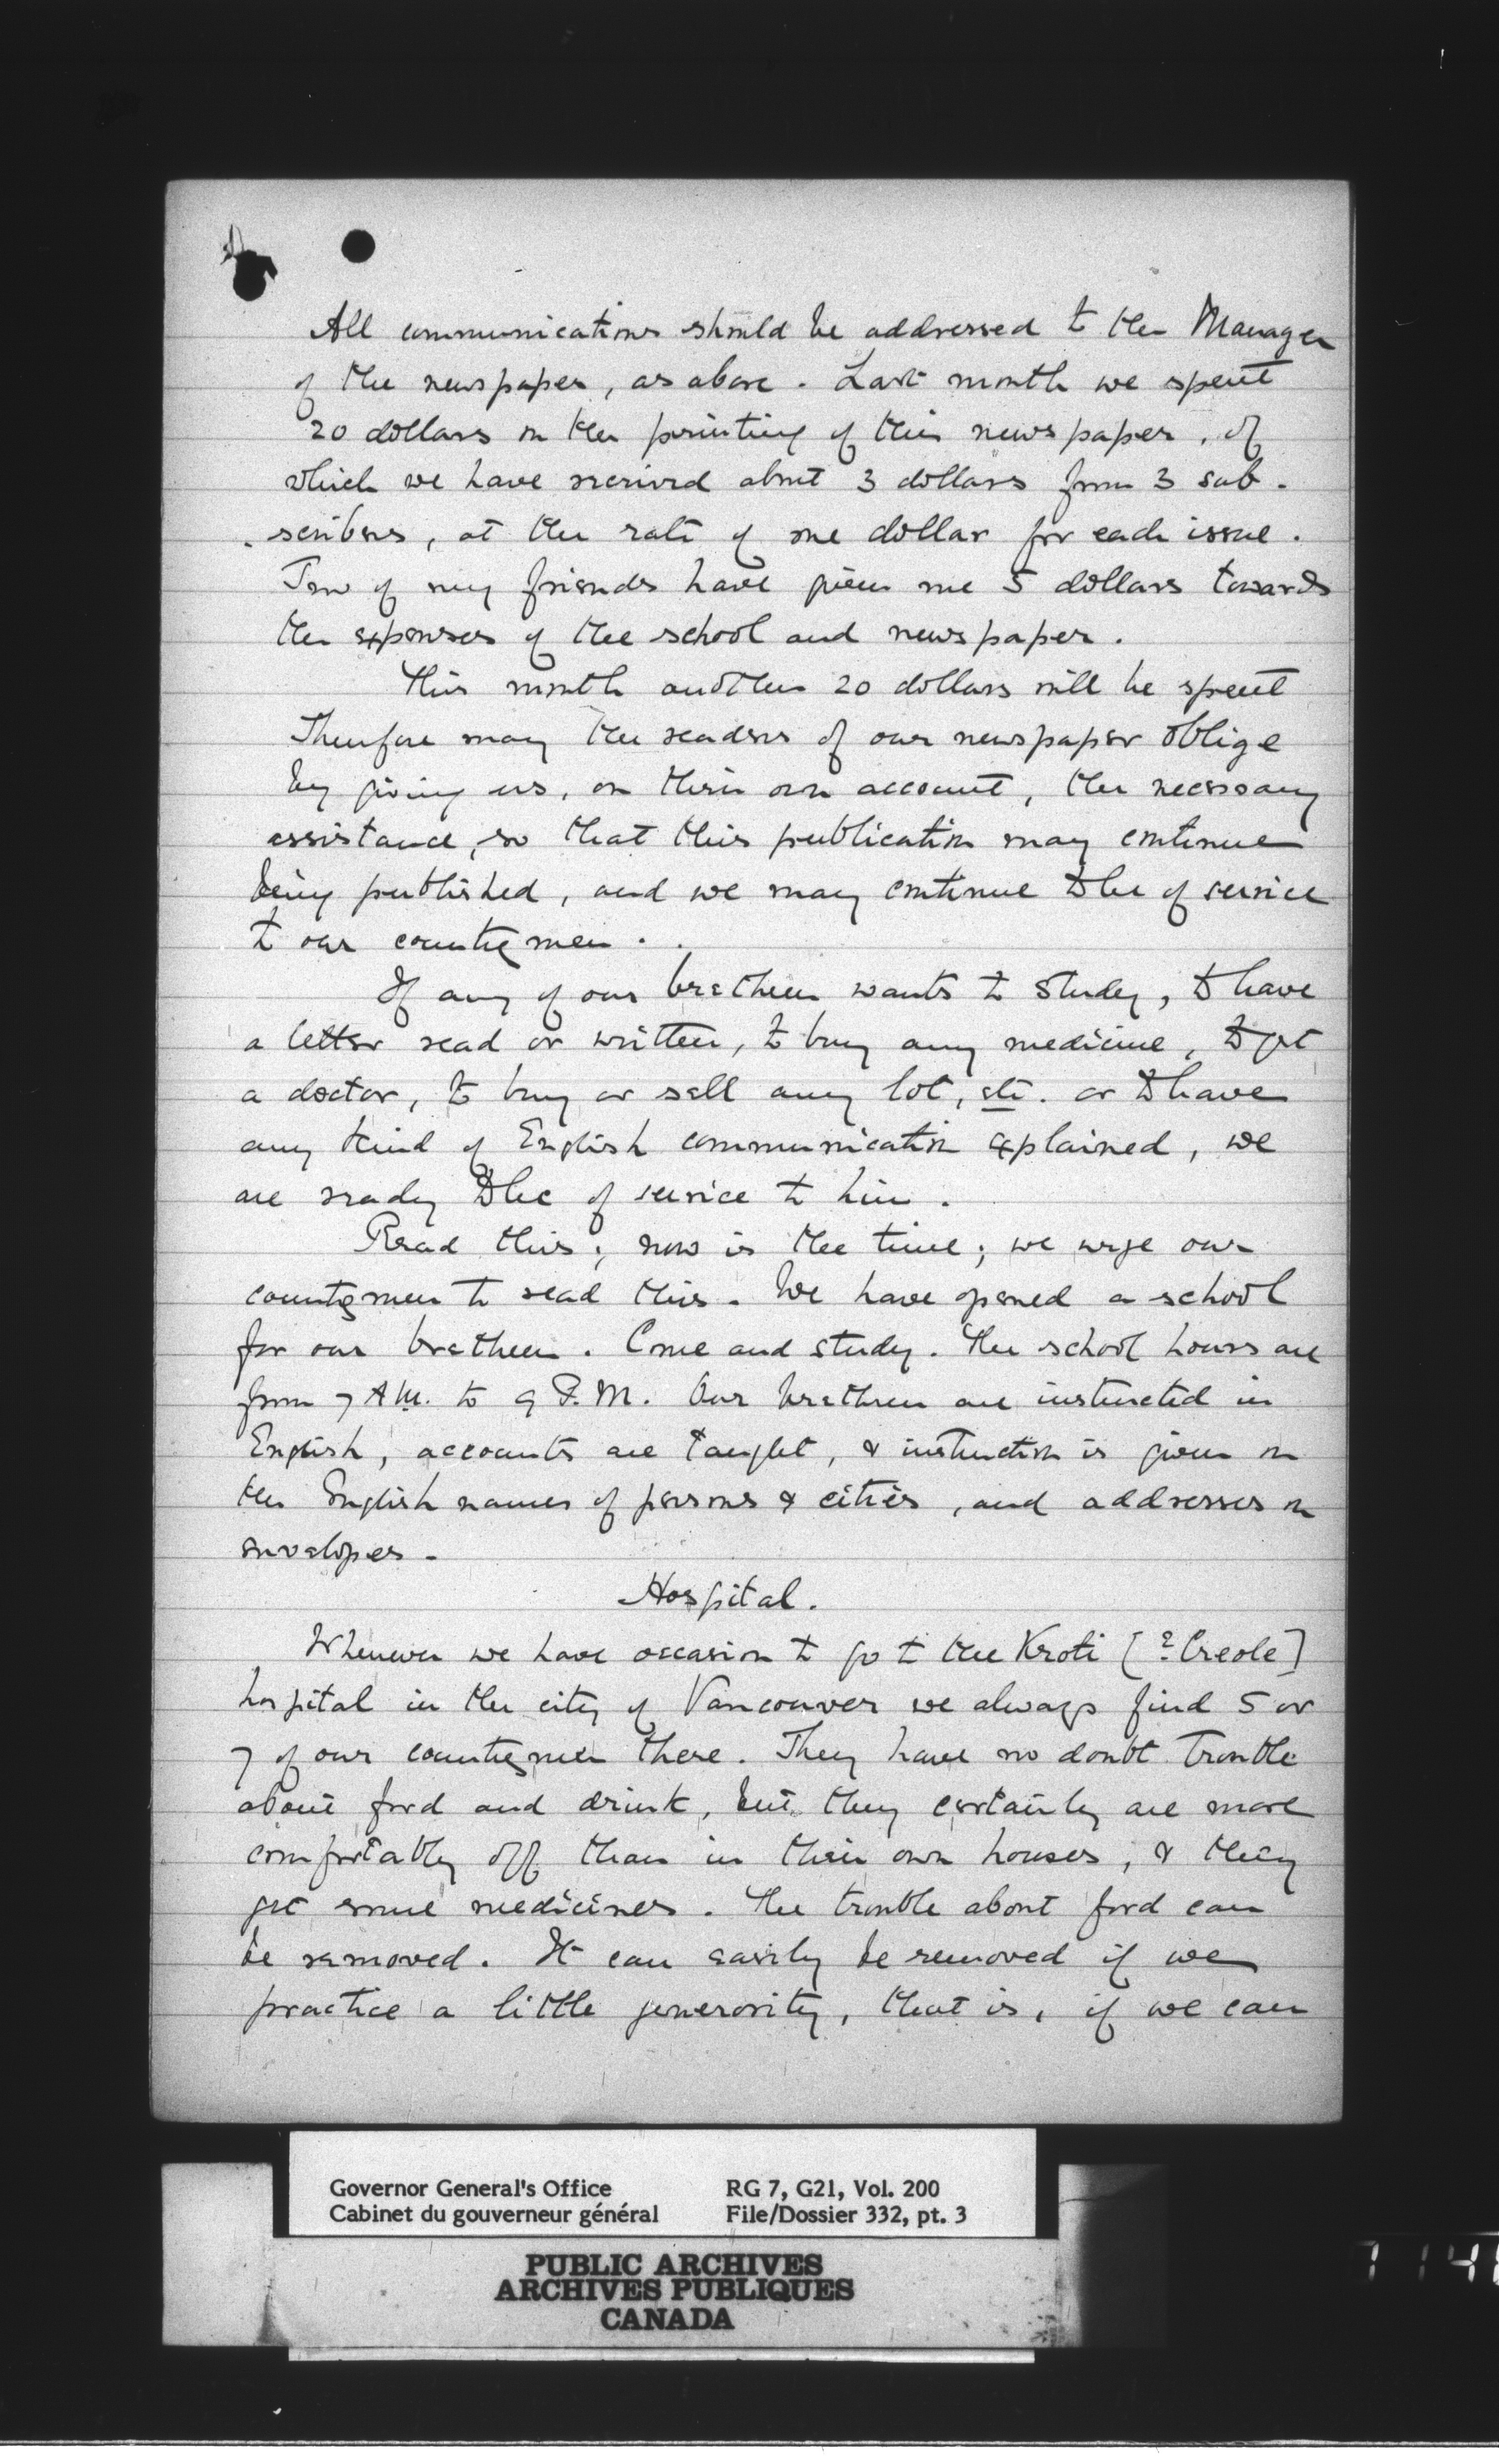 All communications should be addressed to the Manager
of the newspaper, as above. Last month we spent
20 dollars on the printing of this newspaper, of
which we have received about 3 dollars from 3 sub-
-scribers, at the rate of one dollar for each issue.
Two of my friends have given me 5 dollars towards
the expenses of the school and newspaper.
This month another 20 dollars will be spent
Therefore may the readers of our newspaper oblige
by giving us, on their own account, the necessary
assistance, so that this publication may continue
being published, and we may continue to be of service
to our countrymen.
If any of our brethren wants to study, to have
a letter read or written, to buy any medicine, to get
a doctor, to buy or sell any lot, etc. or to have
any kind of English communication explained, we
are ready to be of service to him.
Read this; now is the time; we urge our
countrymen to read this. We have opened a school
for our brethren. Come and study. The school hours are
from 7 A.M. to 9 P.M. Our brethren are instructed in
English, accounts are taught, & instruction is given on
the English names of persons & cities, and addresses on
envelopes.
Hospital.
Whenever we have occasion to go to the Kroti [? Creole]
hospital in the city of Vancouver we always find 5 or
7 of our countrymen there. They have no doubt trouble
about food and drink, but they certainly are more
comfortably off than in their own houses, & they
get some medicines. The trouble about food can
be removed. It can easily be removed if we
practice a little generosity, that is, if we can
Governor General's Office RG 7, G21, Vol. 200
Cabinet du gouverneur général File/Dossier 332, pt. 3
PUBLIC ARCHIVES
ARCHIVES PUBLIQUES
CANADA